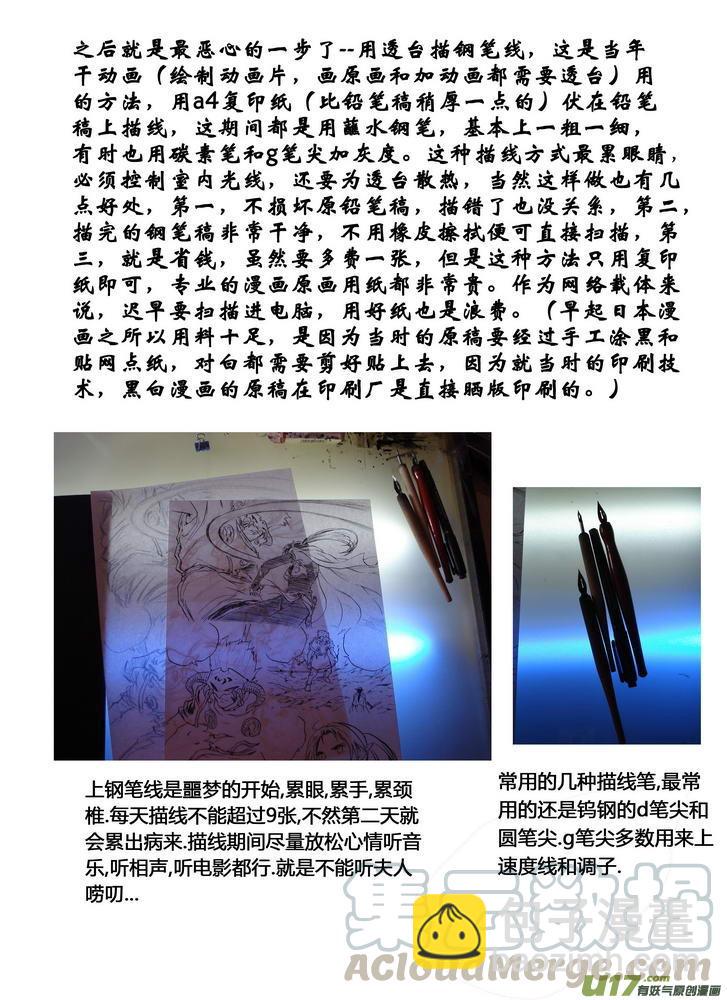 之后就是最恶心的一步了--用透台描钢笔线，这是当年
干动画（绘制动画片，画原画和加动画都需要透台）用
的方法，用a4复印纸（比铅笔稿稍厚一点的）伏在铅笔
稿上描线，这期间都是用蘸水钢笔，基本上一粗一细，
有时也用碳素笔和g笔尖加灰度。这种描线方式最累眼睛，
必须控制室内光线，还要为透台散热，当然这样做也有几
点好处，第一，不损坏原铅笔稿，描错了也没关系，第二，
描完的钢笔稿非常干净，不用橡皮擦拭便可直接扫描，第
三，就是省钱，虽然要多费一张，但是这种方法只用复印
纸即可，专业的漫画原画用纸都非常贵。作为网络载体来
说，迟早要扫描进电脑，用好纸也是浪费。（早起日本漫
画之所以用料十足，是因为当时的原稿要经过手工涂黑和
贴网点纸，对白都需要剪好贴上去，因为就当时的印刷技
术，黑白漫画的原稿在印刷厂是直接晒版印刷的。）
上钢笔线是噩梦的开始,累眼,累手,累颈
椎.每天描线不能超过9张,不然第二天就
会累出病来.描线期间尽量放松心情听音
乐,听相声,听电影都行.就是不能听夫人
唠叨...
常用的几种描线笔,最常
用的还是钨钢的d笔尖和
圆笔尖.g笔尖多数用来上
速度线和调子.
AcloudMerge.com
U17.com
有妖气原创漫画